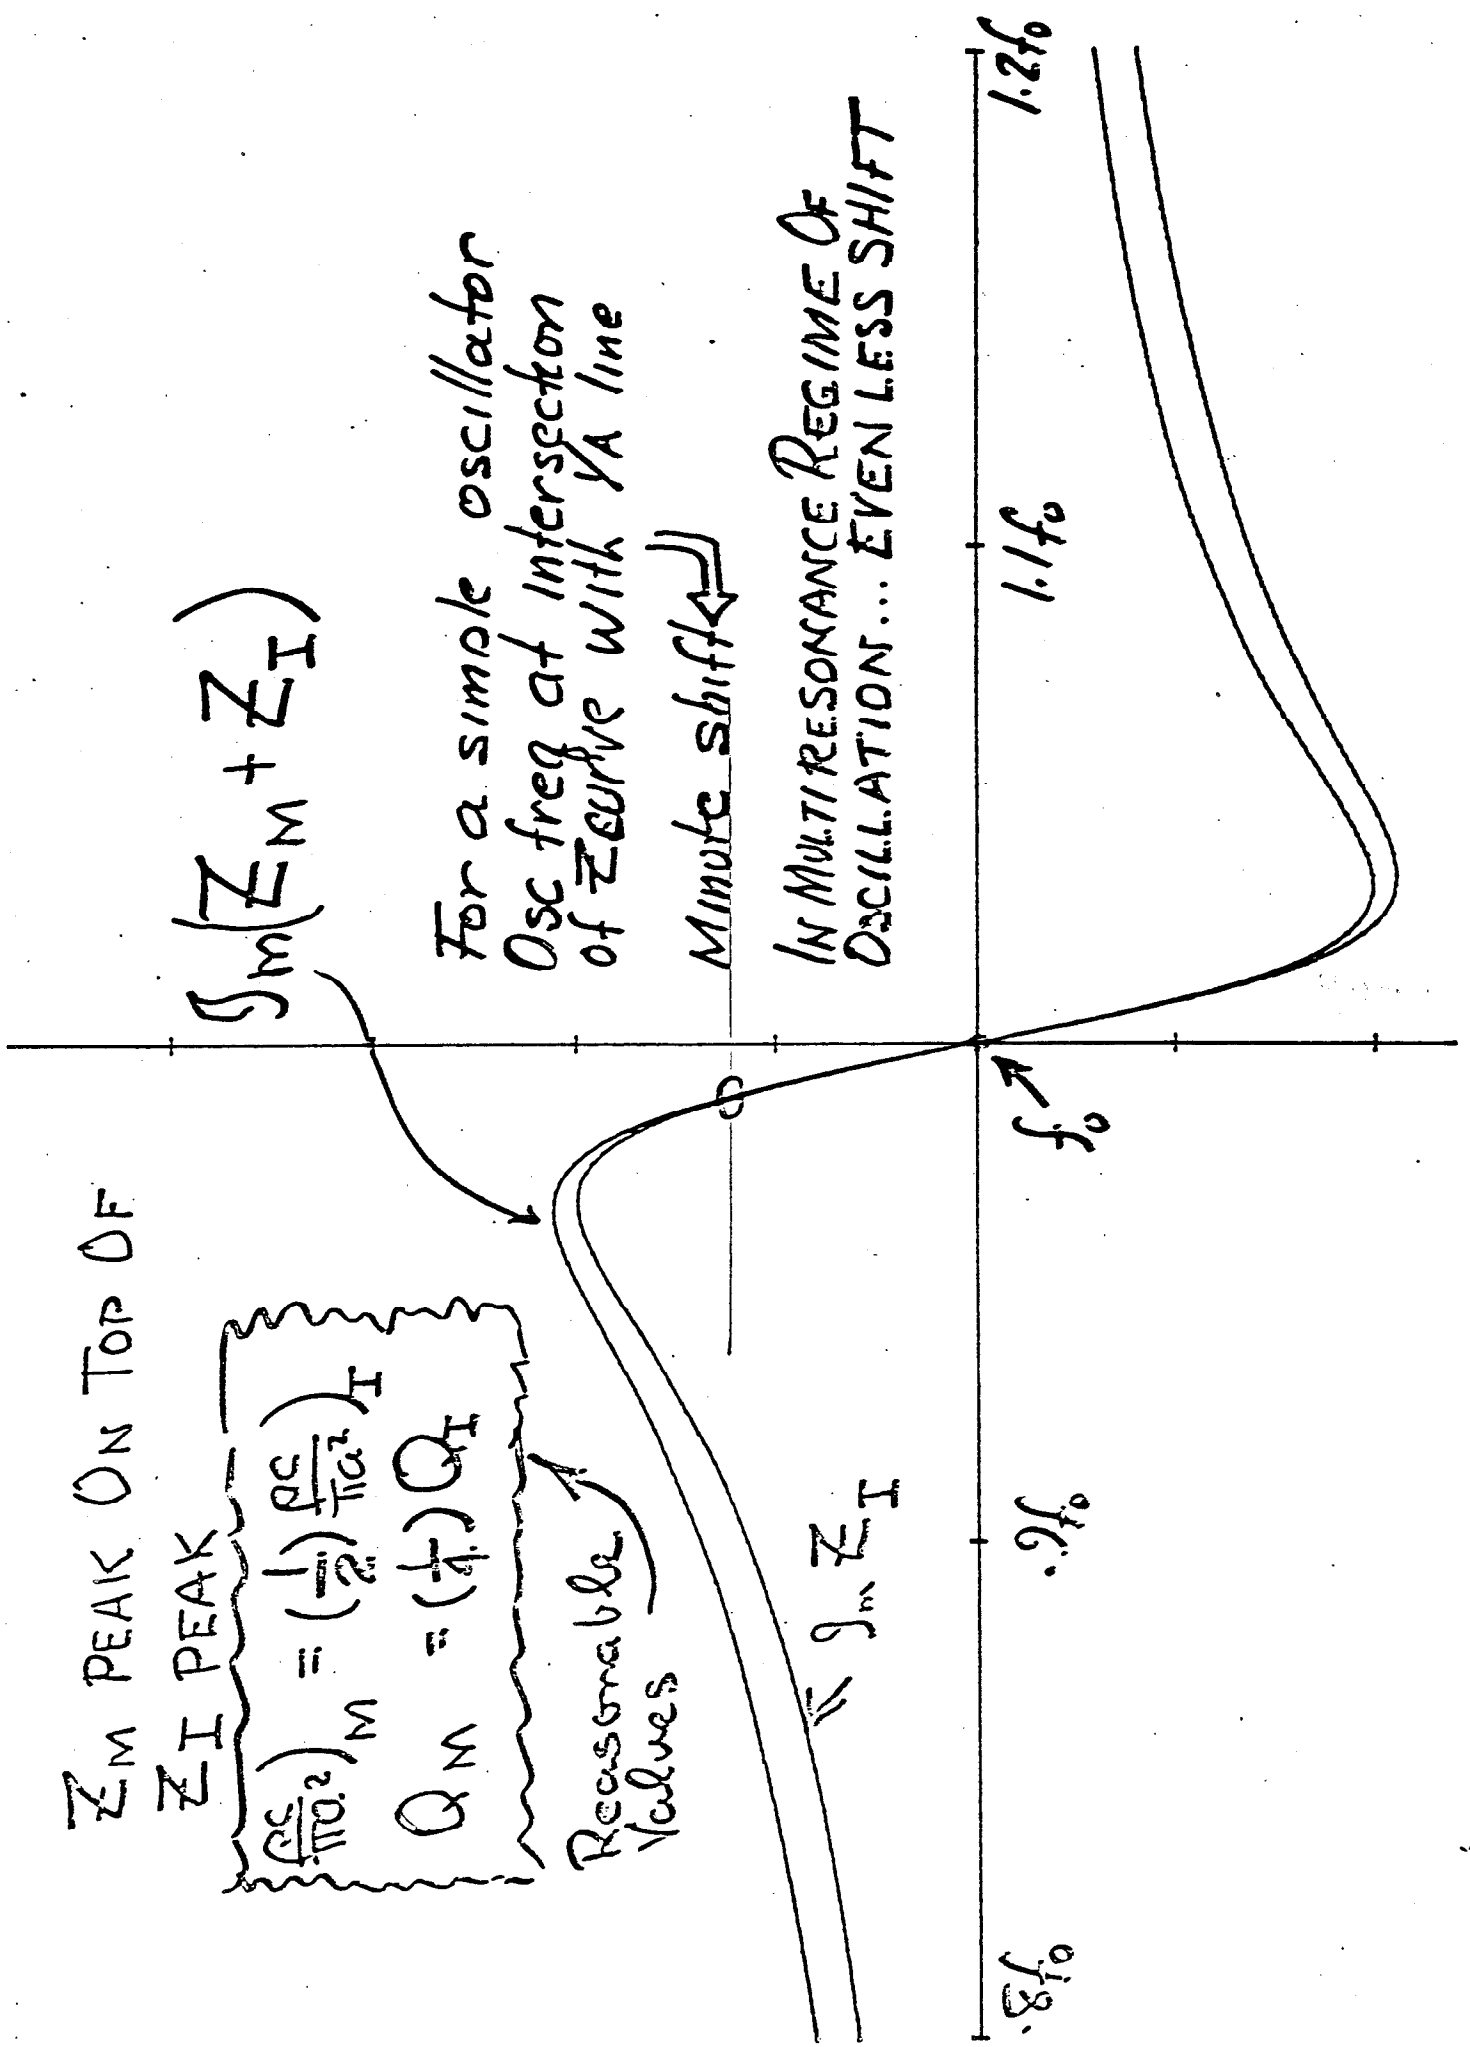 Z_M PEAK ON TOP OF
Z_I PEAK
(ρc/πa²)_M = (1/2) (ρc/πa²)_I
Q_M = (1/4) Q_I
Reasonable
Values
𝒥m(Z_M + Z_I)
For a simple oscillator
Osc freq at intersection
of Z curve with 1/A line
Minute shift
IN MULTIRESONANCE REGIME OF
OSCILLATION... EVEN LESS SHIFT
𝒥m Z_I
.8f₀
.9f₀
f₀
1.1f₀
1.2f₀